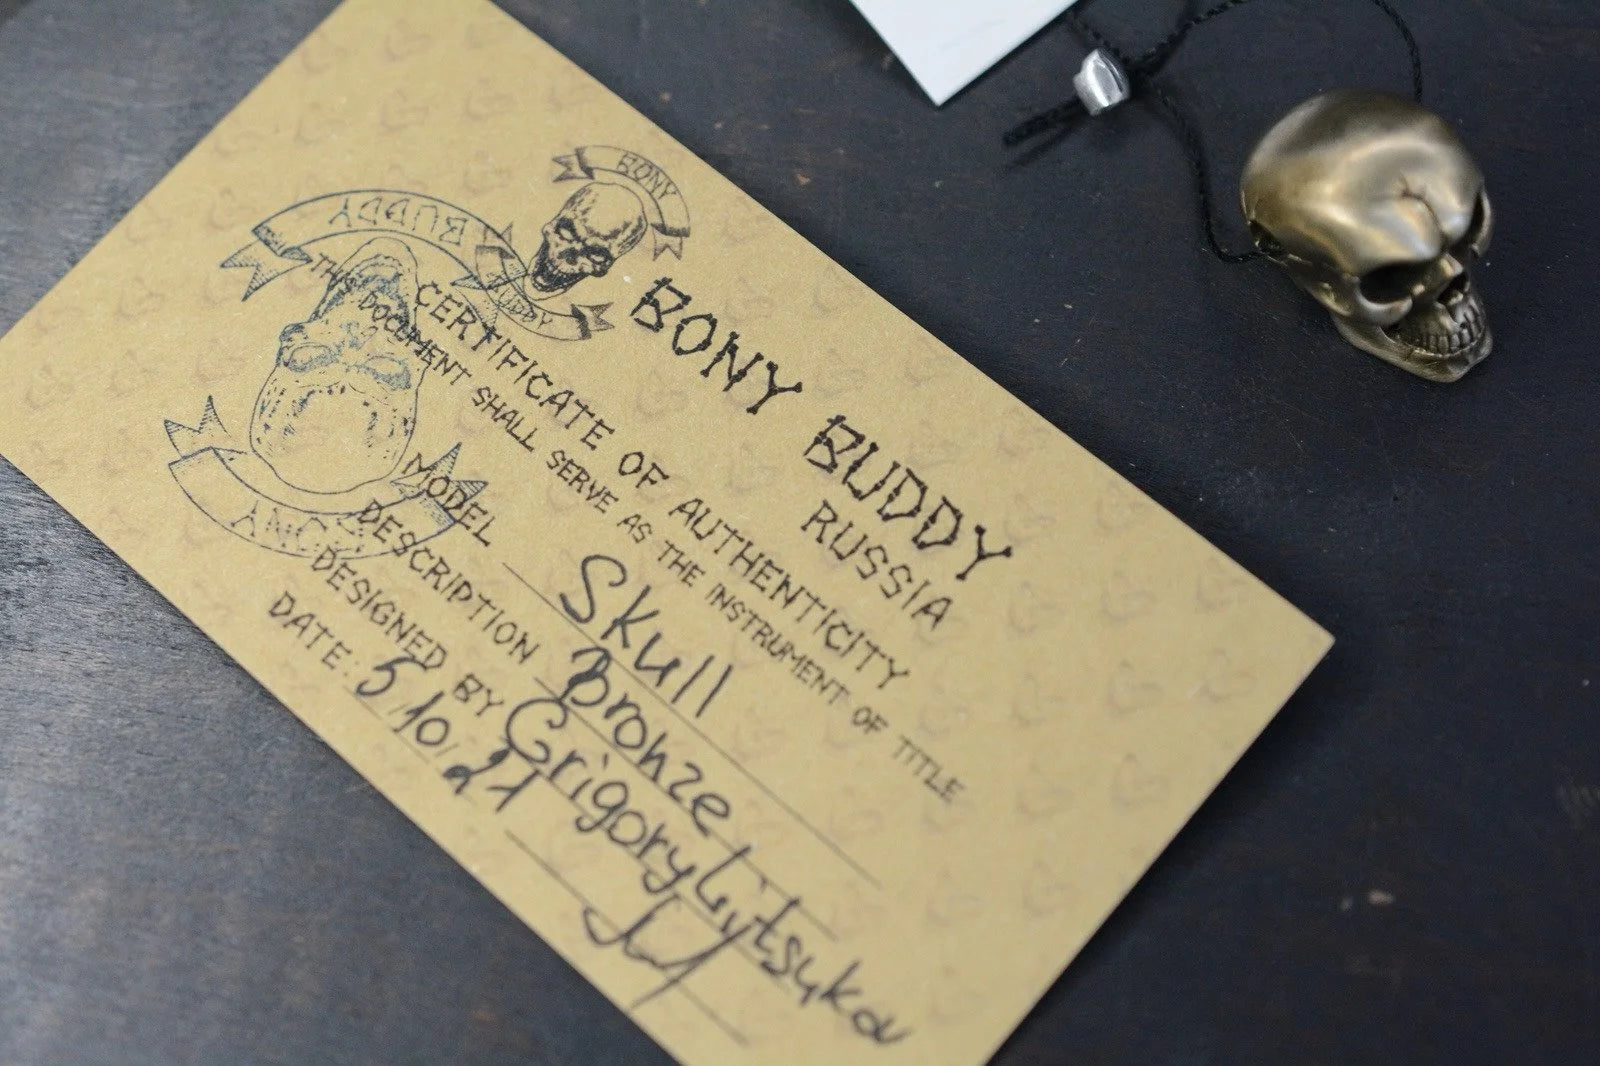 BONY
BUDDY
BONY BUDDY
RUSSIA
CERTIFICATE OF AUTHENTICITY
THIS DOCUMENT SHALL SERVE AS THE INSTRUMENT OF TITLE
MODEL Skull
DESCRIPTION Bronze
DESIGNED BY Grigory Lytsukov
DATE: 5/10/21
BUDDY